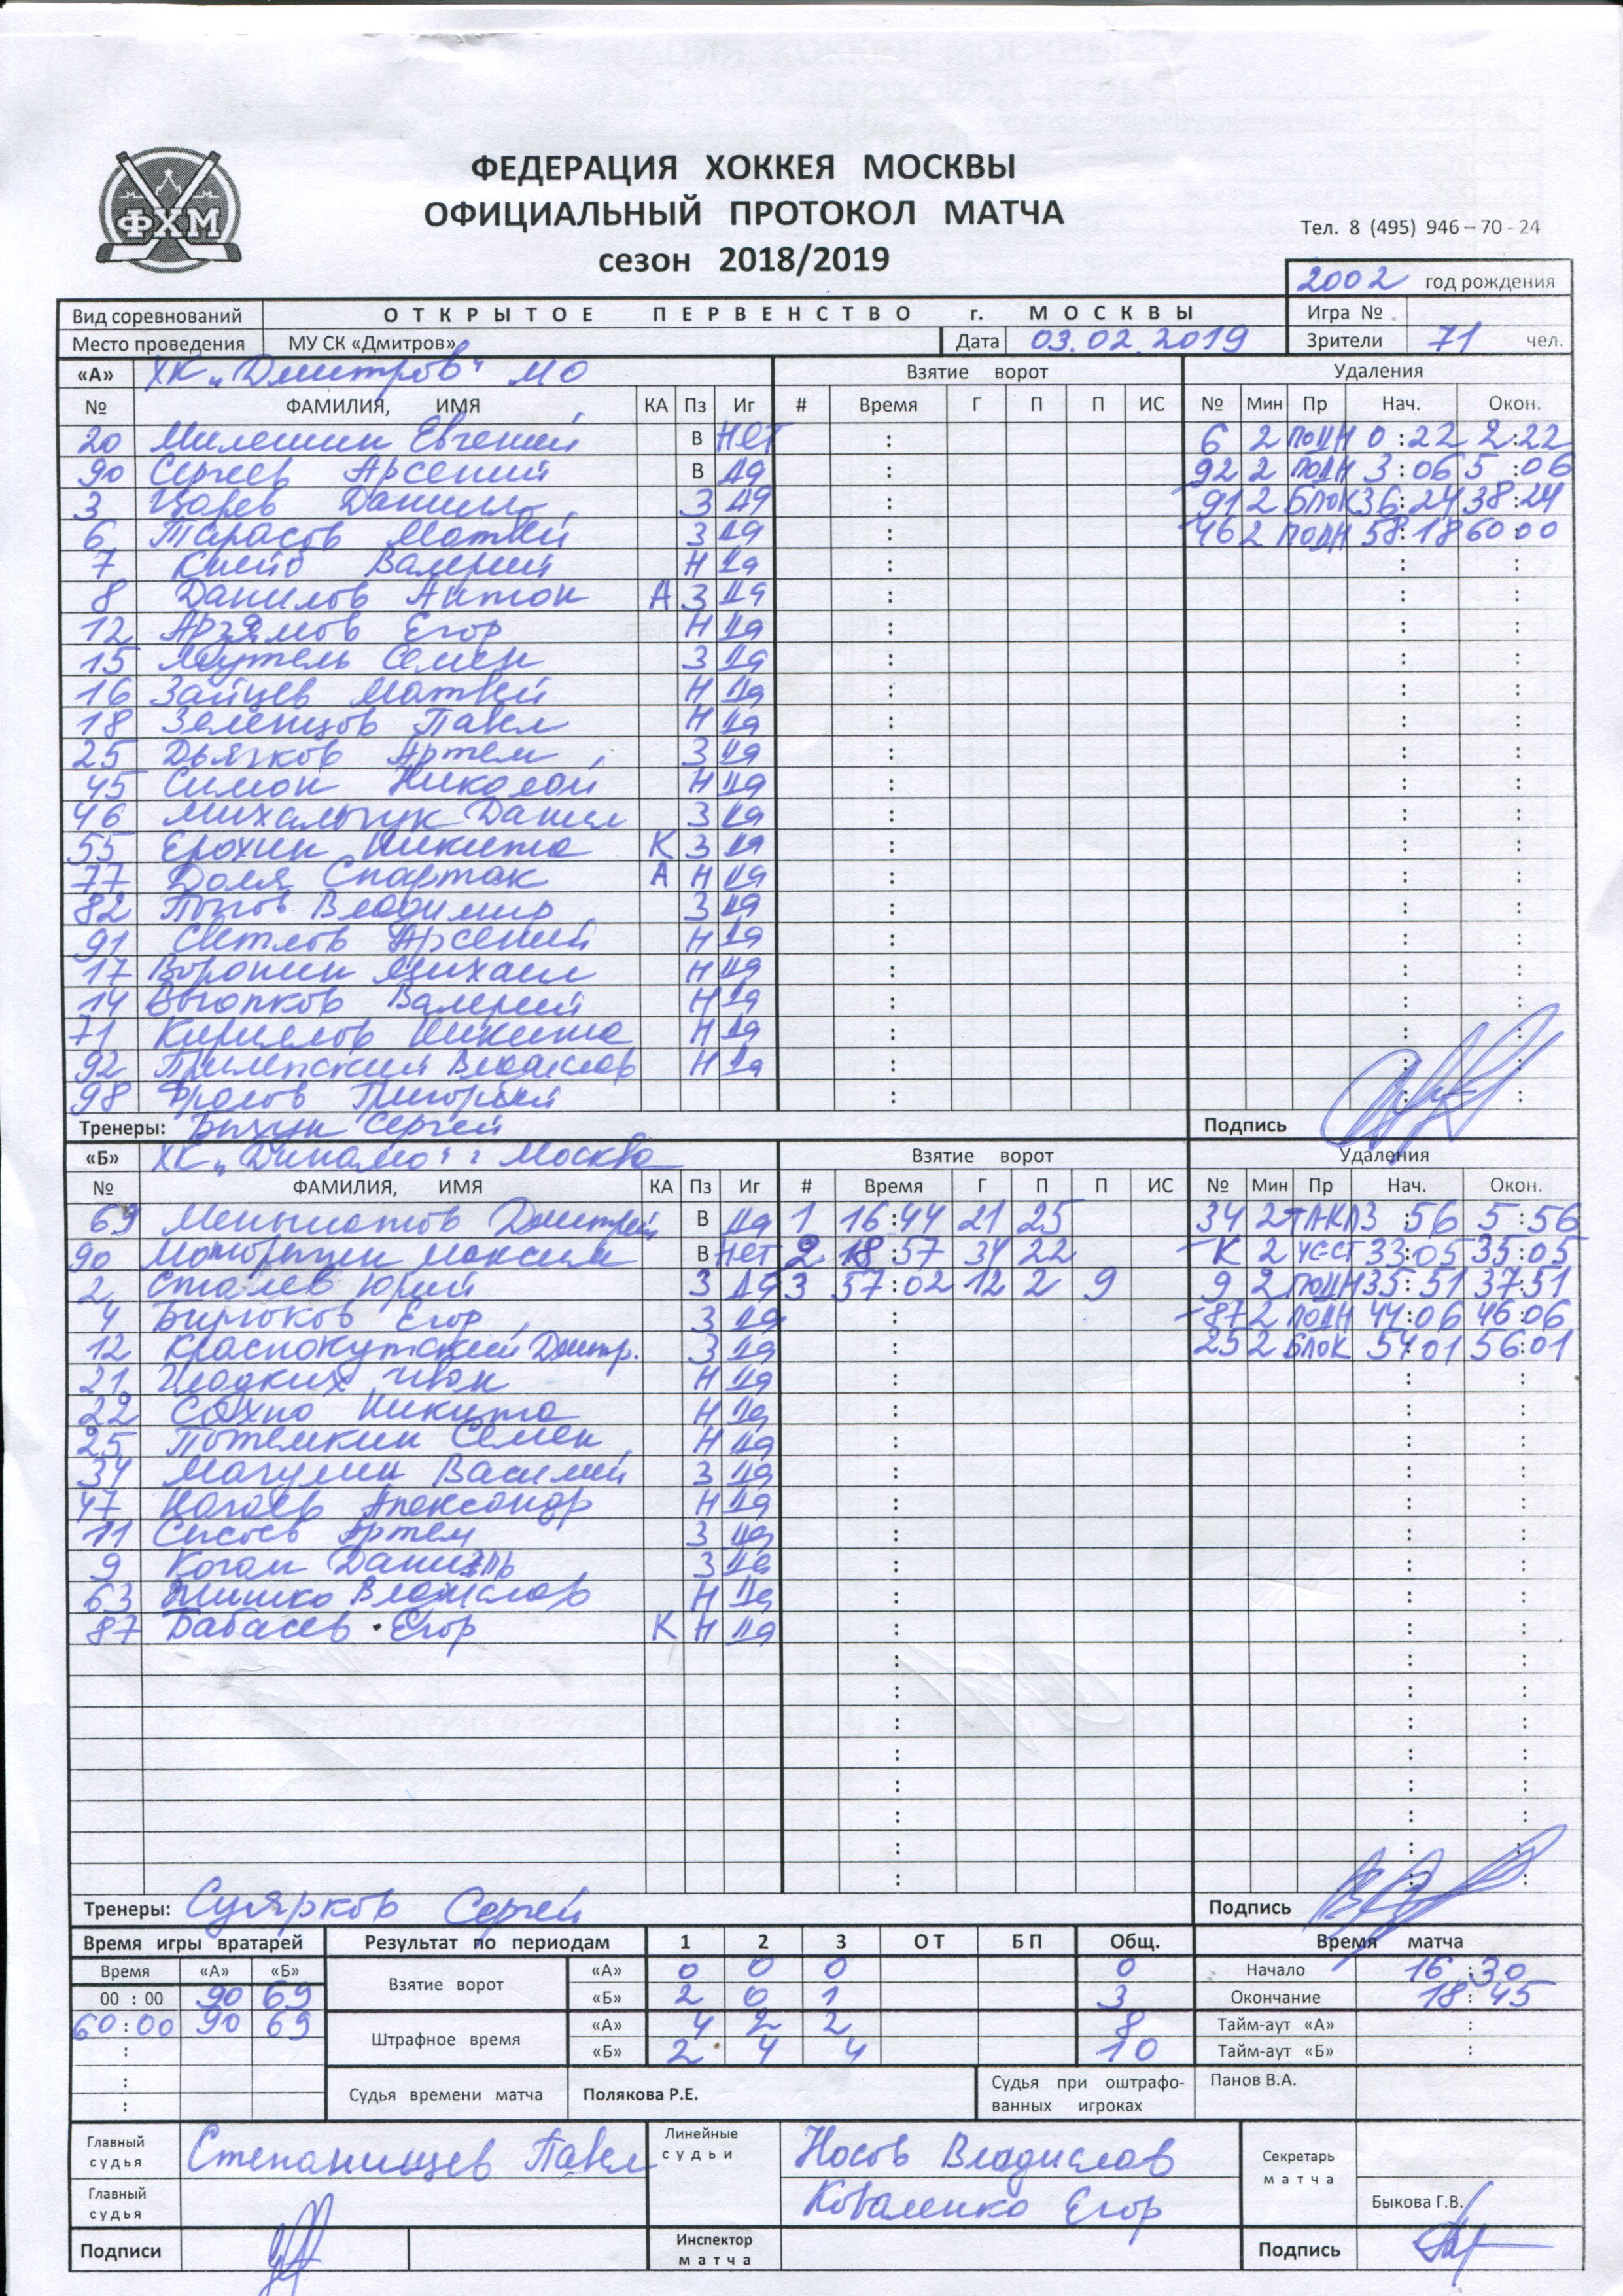 ФЕДЕРАЦИЯ ХОККЕЯ МОСКВЫ
ОФИЦИАЛЬНЫЙ ПРОТОКОЛ МАТЧА
сезон 2018/2019
ФХМ
Тел. 8 (495) 946-70-24
2002 год рождения
Вид соревнований ОТКРЫТОЕ ПЕРВЕНСТВО г. МОСКВЫ Игра №
Место проведения МУ СК «Дмитров» Дата 03.02.2019 Зрители 71 чел.
«А» ХК „Дмитров“ МО Взятие ворот Удаления
№ ФАМИЛИЯ, ИМЯ КА Пз Иг # Время Г П П ИС № Мин Пр Нач. Окон.
20 Милешин Евгений В Нет 6 2 ПОДН 0:22 2:22
90 Сергеев Арсений В Да 92 2 ПОДН 3:06 5:06
3 Царев Даниил З Да 91 2 БЛОК 36:24 38:24
6 Тарасов Матвей З Да 46 2 ПОДН 58:18 60:00
7 Валерий Н Да
8 Данилов Антон А З Да
12 Арзямов Егор Н Да
15 Семен З Да
16 Зайцев Матвей Н Да
18 Зеленцов Павел Н Да
25 Дьячков Артем З Да
45 Симон Николай Н Да
46 Михальчук Данил З Да
55 Ерохин Никита К З Да
77 Доля Спартак А Н Да
82 Попов Владимир З Да
91 Светлов Арсений Н Да
17 Воронин Михаил Н Да
14 Валерий Н Да
71 Кириллов Никита Н Да
92 Прилепский Владислав Н Да
98 Фролов Григорий
Тренеры: Бычун Сергей Подпись
«Б» ХК „Динамо“ г. Москва Взятие ворот Удаления
№ ФАМИЛИЯ, ИМЯ КА Пз Иг # Время Г П П ИС № Мин Пр Нач. Окон.
69 Дмитрий В Да 1 16:44 21 25 34 2 АТАК 3:56 5:56
90 Максим В Нет 2 18:57 34 22 К 2 33:05 35:05
2 Сталев Юрий З Да 3 57:02 12 2 9 9 2 ПОДН 35:51 37:51
4 Бирюков Егор З Да 87 2 ПОДН 44:06 46:06
12 Краснокутский Дмитр. З Да 25 2 БЛОК 54:01 56:01
21 Гладких Иван Н Да
22 Сахно Никита Н Да
25 Потемкин Семен Н Да
34 Мачулин Василий З Да
47 Нагаев Александр Н Да
11 Сысоев Артем З Да
9 Коган Даниэль З Да
63 Тишко Владислав Н Да
87 Бабасев Егор К Н Да
Тренеры: Суярков Сергей Подпись
Время игры вратарей Результат по периодам 1 2 3 ОТ БП Общ. Время матча
Время «А» «Б» Взятие ворот «А» 0 0 0 0 Начало 16:30
00 : 00 90 69 «Б» 2 0 1 3 Окончание 18:45
60:00 90 69 Штрафное время «А» 4 2 2 8 Тайм-аут «А» :
: «Б» 2 4 4 10 Тайм-аут «Б» :
Судья времени матча Полякова Р.Е. Судья при оштрафо- Панов В.А.
ванных игроках
Главный судья Степанищев Павел Линейные судьи Носов Владислав Секретарь матча
Главный судья Коваленко Егор Быкова Г.В.
Подписи Инспектор матча Подпись